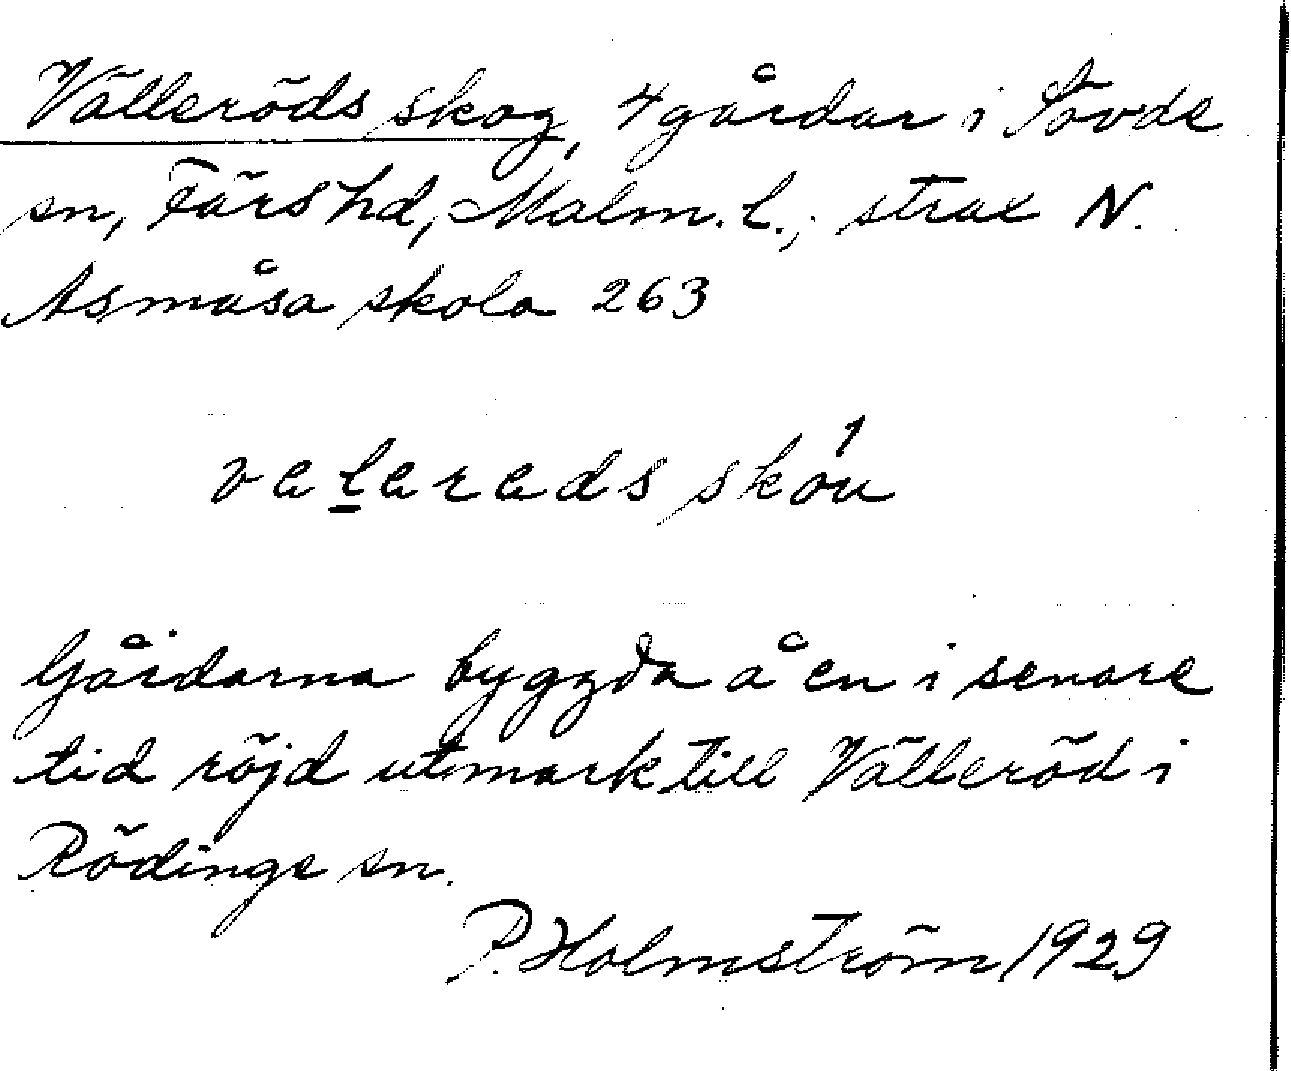 Välleröds skog, 4 gårdar i Sövde
sn, Färs hd, Malm. l.; strax N.
Asmåsa skola 263
valarads skóu
Gårdarna byggda å en i senare
tid röjd utmark till Välleröd i
Rödinge sn.
P. Holmström 1929